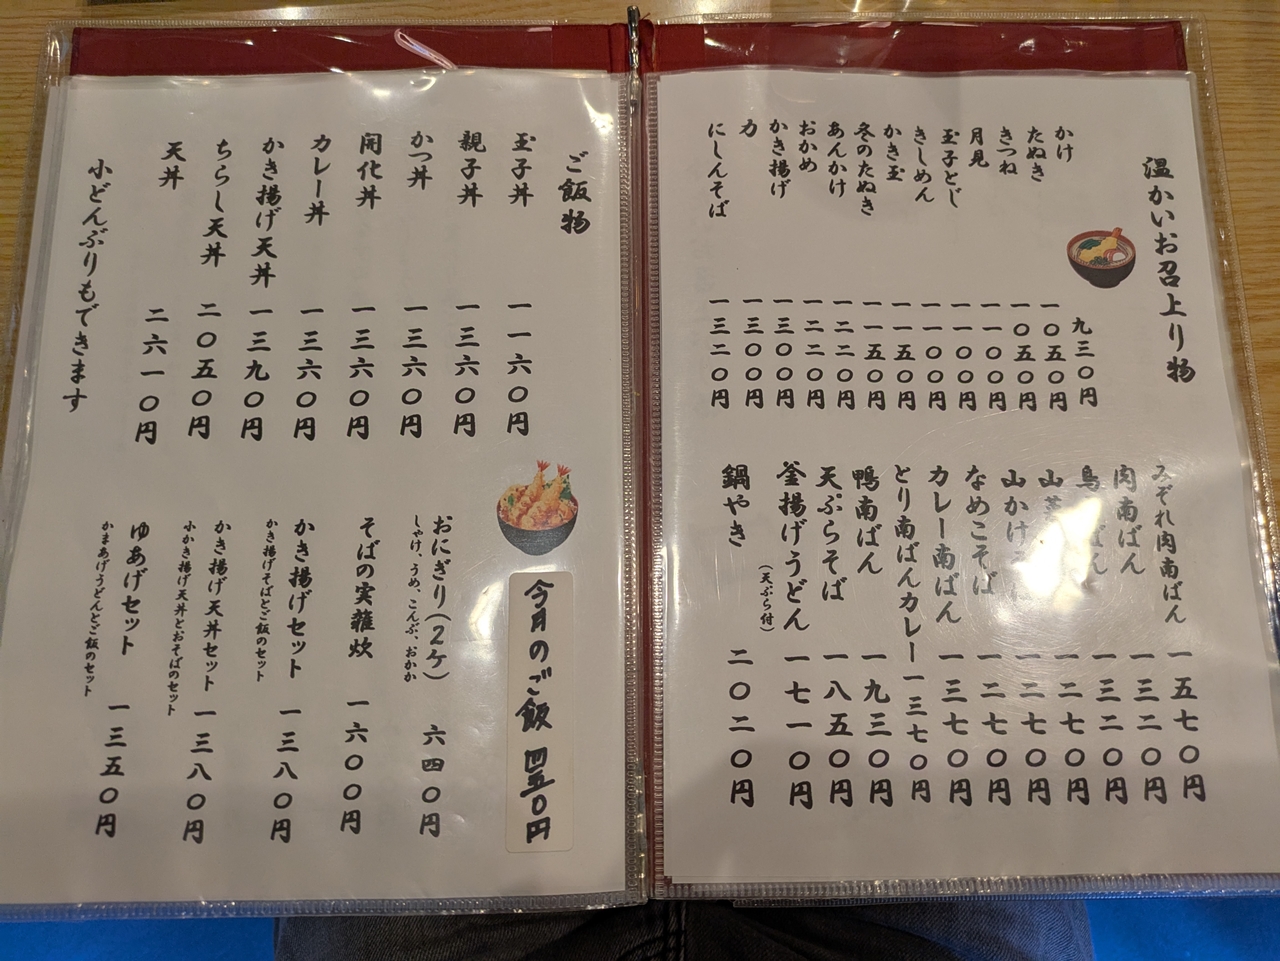 温かいお召上り物
かけ 九三〇円
たぬき 一〇五〇円
きつね 一〇五〇円
月見 一一〇〇円
玉子とじ 一一〇〇円
きしめん 一一〇〇円
かき玉 一一五〇円
冬のたぬき 一一五〇円
あんかけ 一二二〇円
おかめ 一二二〇円
かき揚げ 一三〇〇円
力 一三〇〇円
にしんそば 一三二〇円
みぞれ肉南ばん 一五七〇円
肉南ばん 一三二〇円
鳥 ばん 一三二〇円
山 一二七〇円
山かけ 一二七〇円
なめこそば 一二七〇円
カレー南ばん 一三七〇円
とり南ばんカレー 一三七〇円
鴨南ばん 一九三〇円
天ぷらそば 一八五〇円
釜揚げうどん 一七一〇円
(天ぷら付)
鍋やき 二〇二〇円
ご飯物
玉子丼 一一六〇円
親子丼 一三六〇円
かつ丼 一三六〇円
開化丼 一三六〇円
カレー丼 一三六〇円
かき揚げ天丼 一三九〇円
ちらし天丼 二〇五〇円
天丼 二六一〇円
小どんぶりもできます
今月のご飯 四五〇円
おにぎり(2ケ) 六四〇円
しゃけ、うめ、こんぶ、おかか
そばの実雑炊 一六〇〇円
かき揚げセット 一三八〇円
かき揚げそばとご飯のセット
かき揚げ天丼セット 一三八〇円
小かき揚げ天丼とおそばのセット
ゆあげセット 一三五〇円
かまあげうどんとご飯のセット